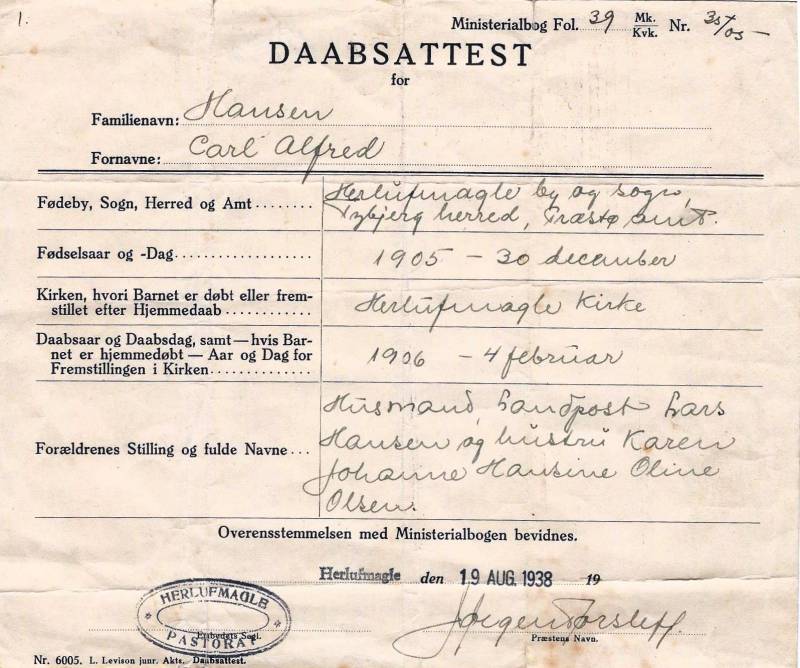 1.
Ministerialbog Fol. 39 Mk. Kvk. Nr. 35/05 –
DAABSATTEST
for
Familienavn: Hansen
Fornavne: Carl Alfred
Fødeby, Sogn, Herred og Amt ........ Herlufmagle by og sogn,
Tybjerg herred, Præstø amt.
Fødselsaar og -Dag .................... 1905 – 30 december
Kirken, hvori Barnet er døbt eller frem-
stillet efter Hjemmedaab ............ Herlufmagle Kirke
Daabsaar og Daabsdag, samt — hvis Bar-
net er hjemmedøbt — Aar og Dag for
Fremstillingen i Kirken .............. 1906 – 4 februar
Forældrenes Stilling og fulde Navne ... Husmand, Landpost Lars
Hansen og hustru Karen
Johanne Hansine Oline
Olsen.
Overensstemmelsen med Ministerialbogen bevidnes.
Herlufmagle den 19 AUG. 1938 19
HERLUFMAGLE
PASTORAT
Embedets Segl.
Jørgen
Præstens Navn.
Nr. 6005. L. Levison junr. Akts. Daabsattest.